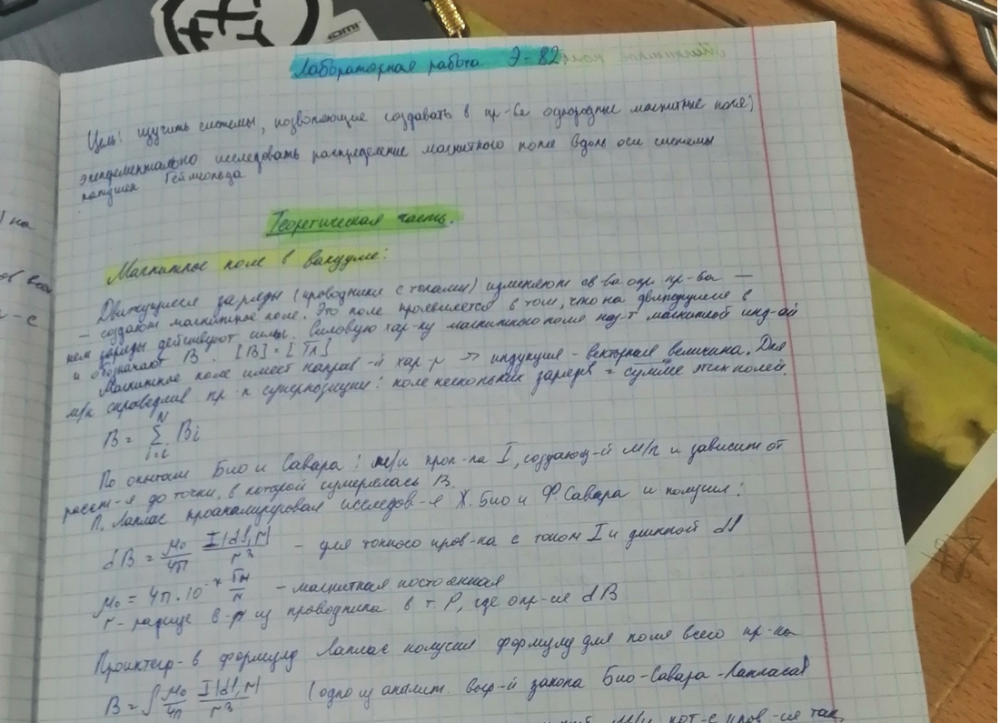 Лабораторная работа Э-82
Цель: изучить системы, позволяющие создавать в пр-ве однородные магнитные поля;
экспериментально исследовать распределение магнитного поля вдоль оси системы
катушек Гельмгольца
Теоретическая часть.
Магнитное поле в вакууме:
Движущиеся заряды (проводники с токами) изменяют св-ва окр. пр-ва —
— создают магнитное поле. Это поле проявляется в том, что на движущиеся в
нем заряды действуют силы. Силовую хар-ку магнитного поля наз-т магнитной инд-ей
и обозначают B. [B] = [Тл]
Магнитное поле имеет направ-й хар-р => индукция - векторная величина. Для
м/п справедлив пр-п суперпозиции: поле нескольких зарядов = сумме этих полей.
B = N Σ i=1 Bi
По опытам Био и Савара: м/п проп-на I, создающ-й м/п и зависит от
расст-я до точки, в которой измерялась B.
П. Лаплас проанализировал исследов-я Ж. Био и Ф Савара и получил:
dB = μ₀/4π I|dl,r|/r³ - для тонкого пров-ка с током I и длинной dl
μ₀ = 4π·10⁻⁷ - магнитная постоянная
r - радиус в-р из проводника в т. P, где опр-ся dB
Проинтегр-в формулу Лаплас получил формулу для поля всего пр-ка
B = ∫ μ₀/4π I|dl,r|/r³ (одно из аналит. выр-й закона Био-Савара-Лапласа)
м/п кот-е пров-ся так
Магнитное поле
) на
-с